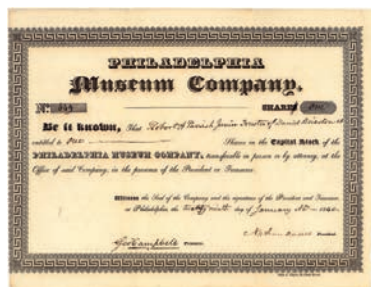 PHILADELPHIA
Museum Company.
No. SHARES One
Be it known, That Robert A Parrish Junior Trustee of Daniel
entitled to One Shares in the Capital Stock of the
PHILADELPHIA MUSEUM COMPANY, transferable in person or by attorney, at the
Office of said Company, in the presence of the President or Treasurer.
Witness the Seal of the Company and the signatures of the President and Treasurer,
at Philadelphia, the twenty ninth day of January AD 1840
President
Geo Campbell Treasurer.